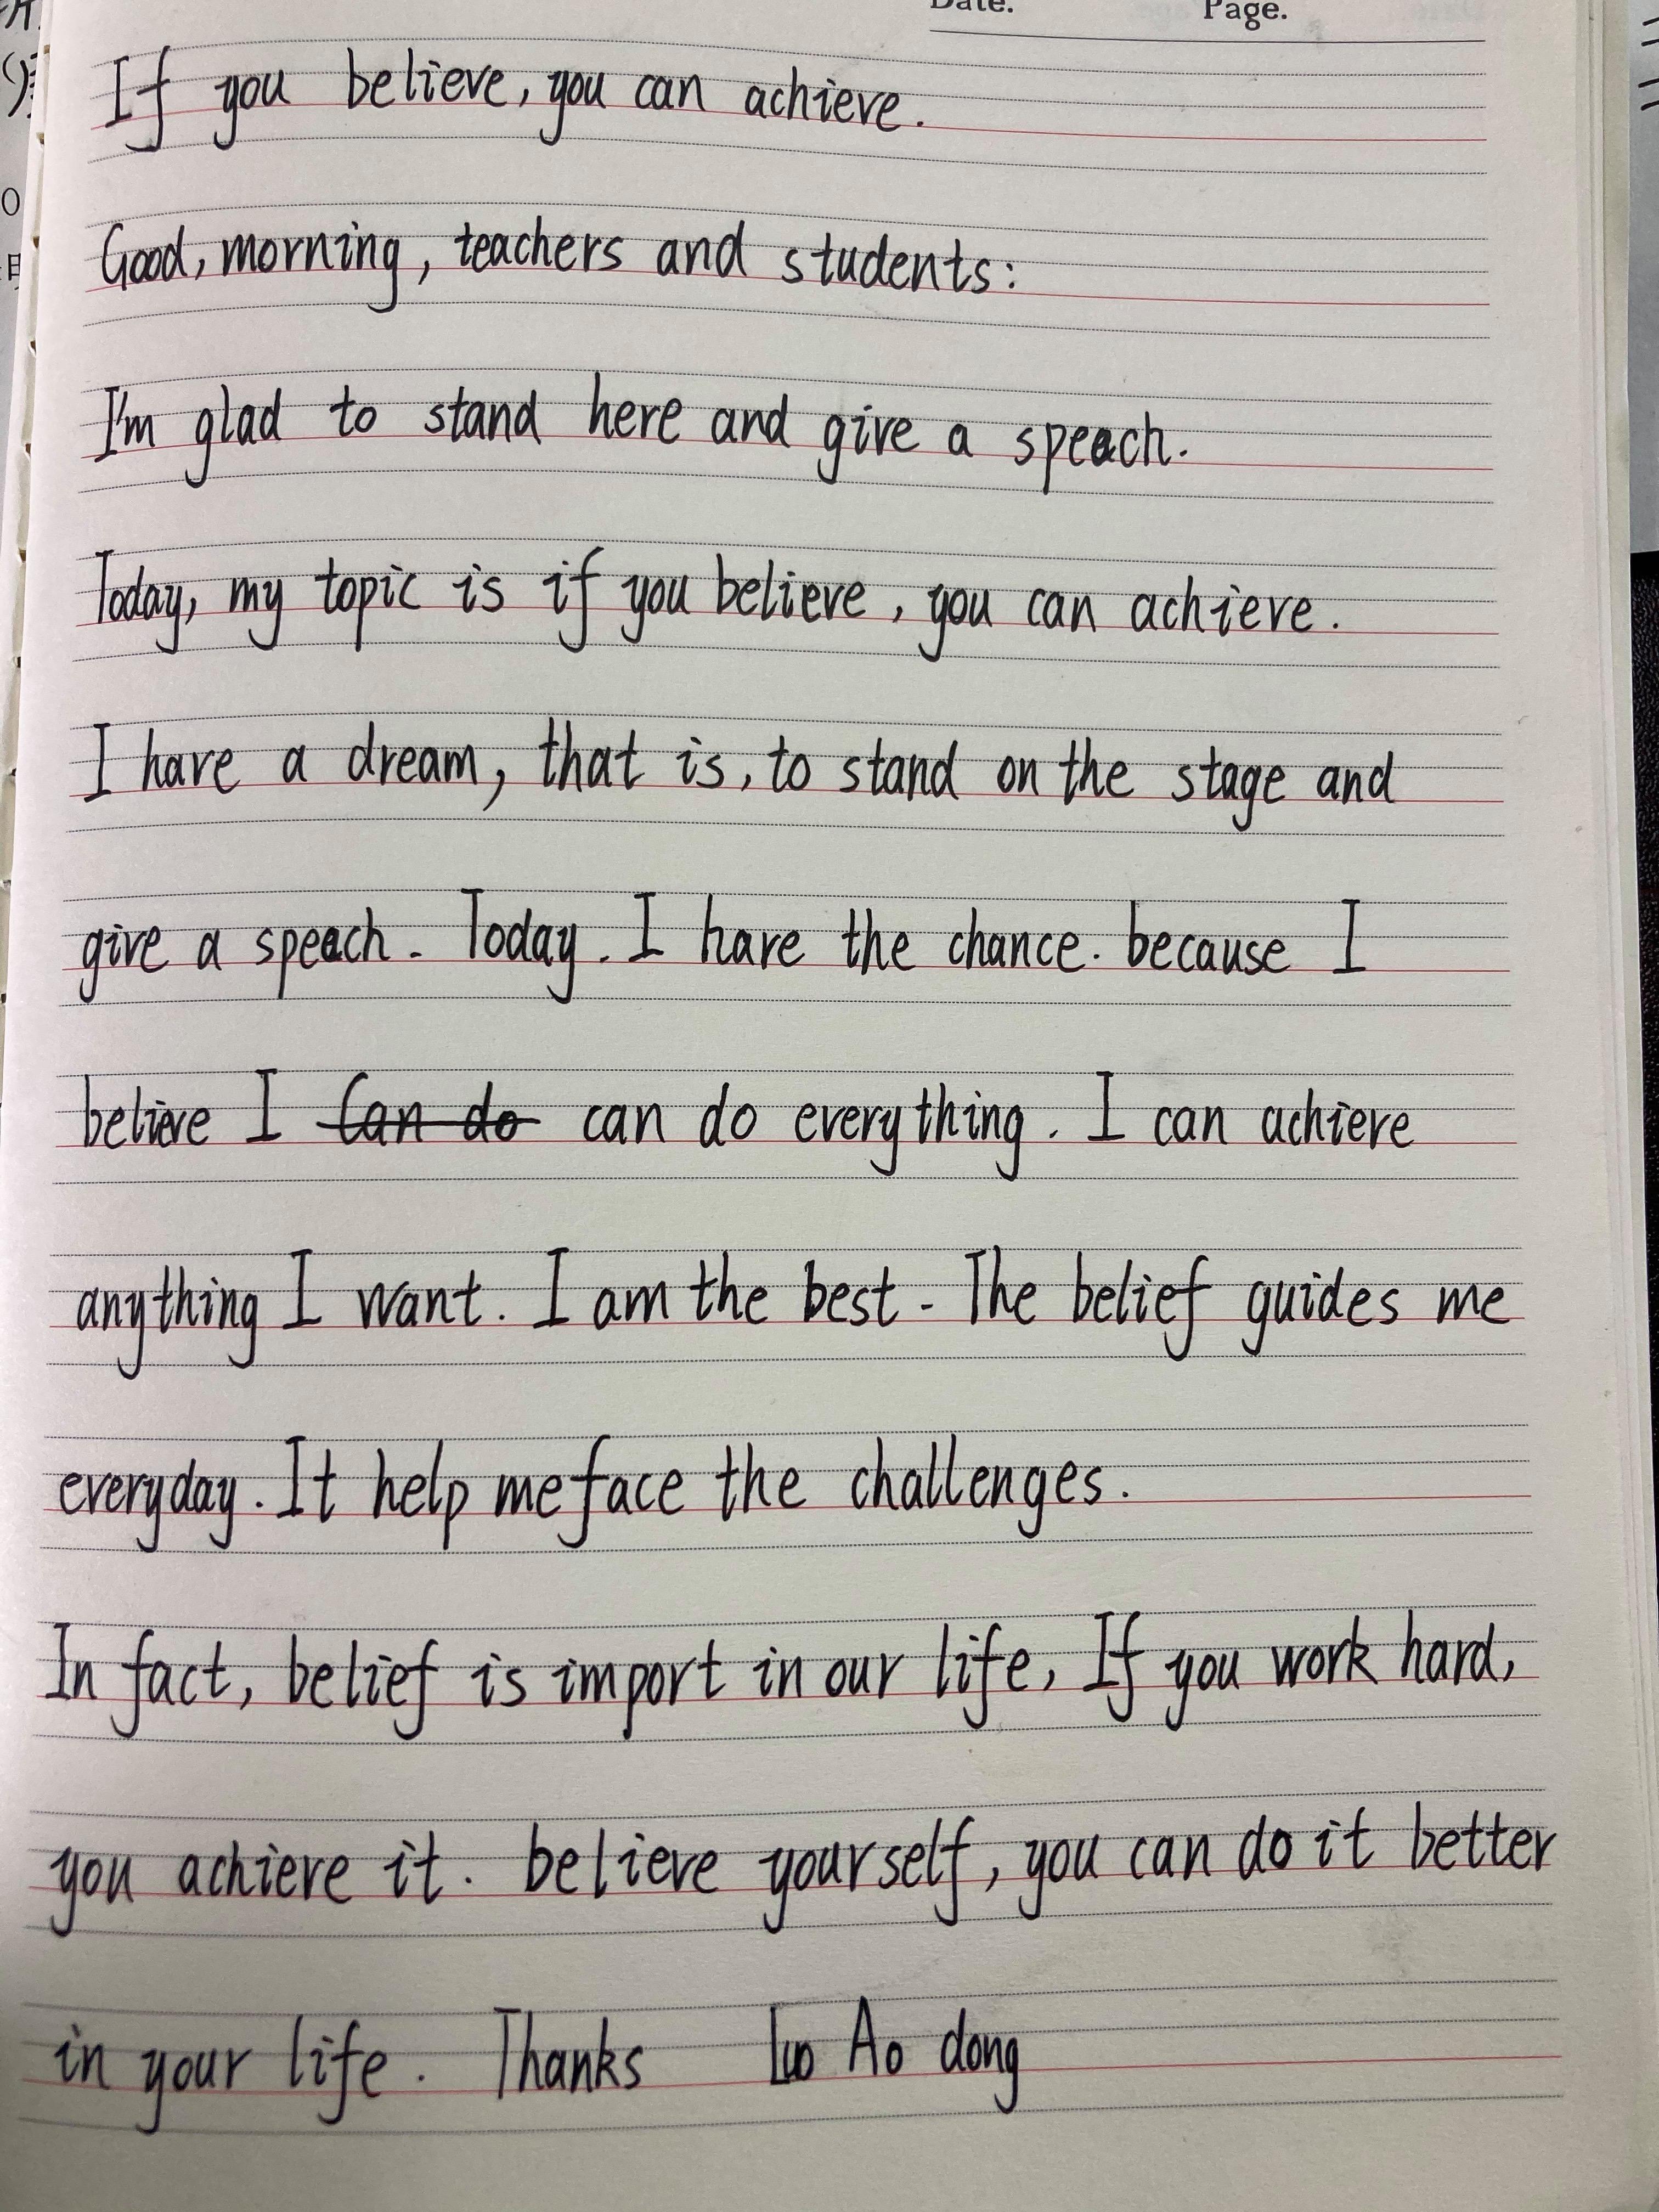 Date. Page.
If you believe, you can achieve.
Good, morning, teachers and students:
I'm glad to stand here and give a speach.
Today, my topic is if you believe, you can achieve.
I have a dream, that is, to stand on the stage and
give a speach. Today. I have the chance. because I
believe I can do can do everything. I can achieve
anything I want. I am the best. The belief guides me
everyday. It help me face the challenges.
In fact, belief is import in our life, If you work hard,
you achieve it. believe yourself, you can do it better
in your life. Thanks Luo Ao dong